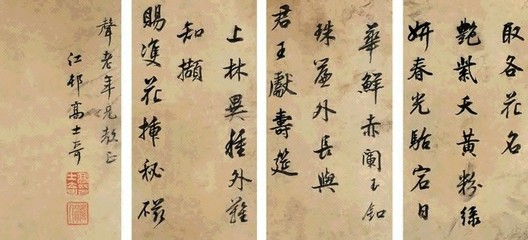 取各花名
艷紫天黄粉緑
妍春光駘宕日
華鮮赤闌玉釦
珠簾外長與
君王獻壽筵
上林異種外難
知擷
賜隻花插秘磁
聲老年兄教正
江邨高士奇